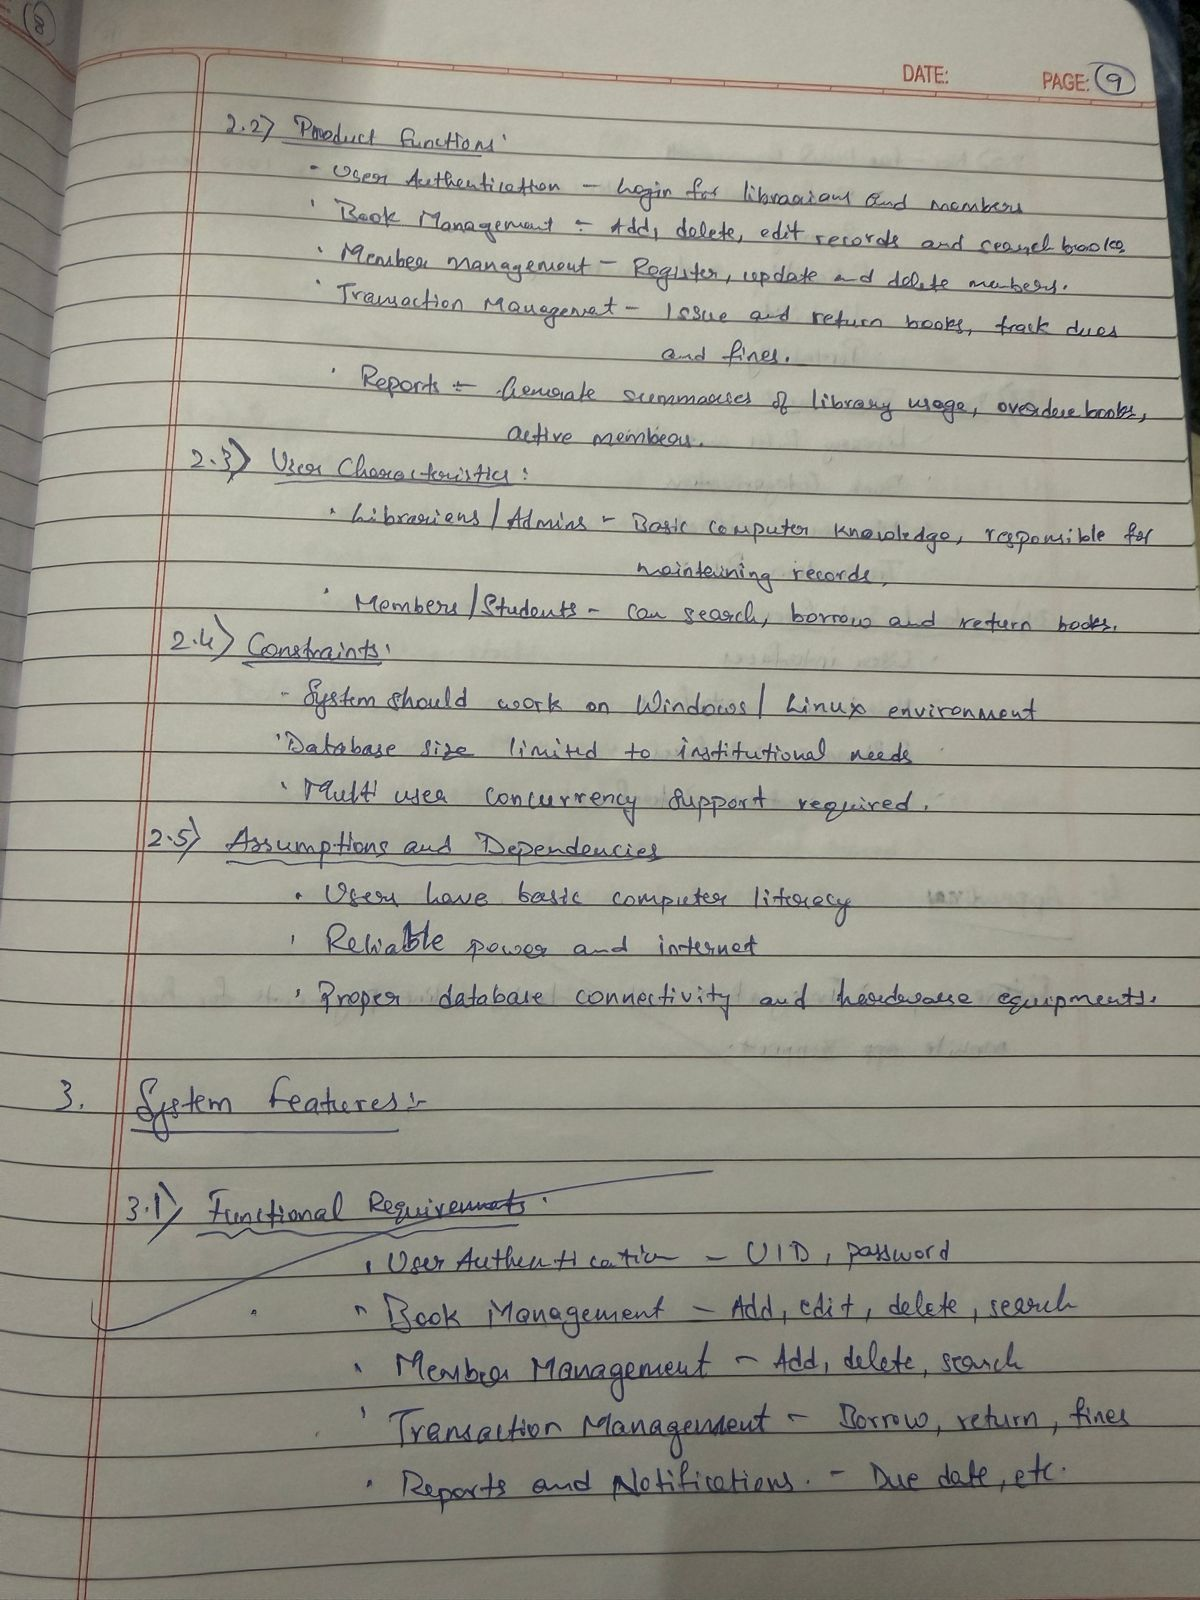 DATE:
PAGE: 9
2.2) Product functions:
· User Authentication - Login for librarians and members
· Book Management :- Add, delete, edit records and search books.
· Member management - Register, update and delete members.
· Transaction Management - Issue and return books, track dues
and fines.
· Reports :- Generate summaries of library usage, overdue books,
active members.
2.3) User Characteristics:
· Librarians/Admins - Basic computer knowledge, responsible for
maintaining records.
· Members/Students - can search, borrow and return books.
2.4) Constraints:
- System should work on Windows/Linux environment
· Database size limited to institutional needs
· Multi user concurrency support required.
2.5) Assumptions and Dependencies
· Users have basic computer literacy
· Reliable power and internet
· Proper database connectivity and hardware equipments.
3. System Features:-
3.1) Functional Requirements:
· User Authentication - UID, password
· Book Management - Add, edit, delete, search
· Member Management - Add, delete, search
· Transaction Management - Borrow, return, fines
· Reports and Notifications. - Due date, etc.